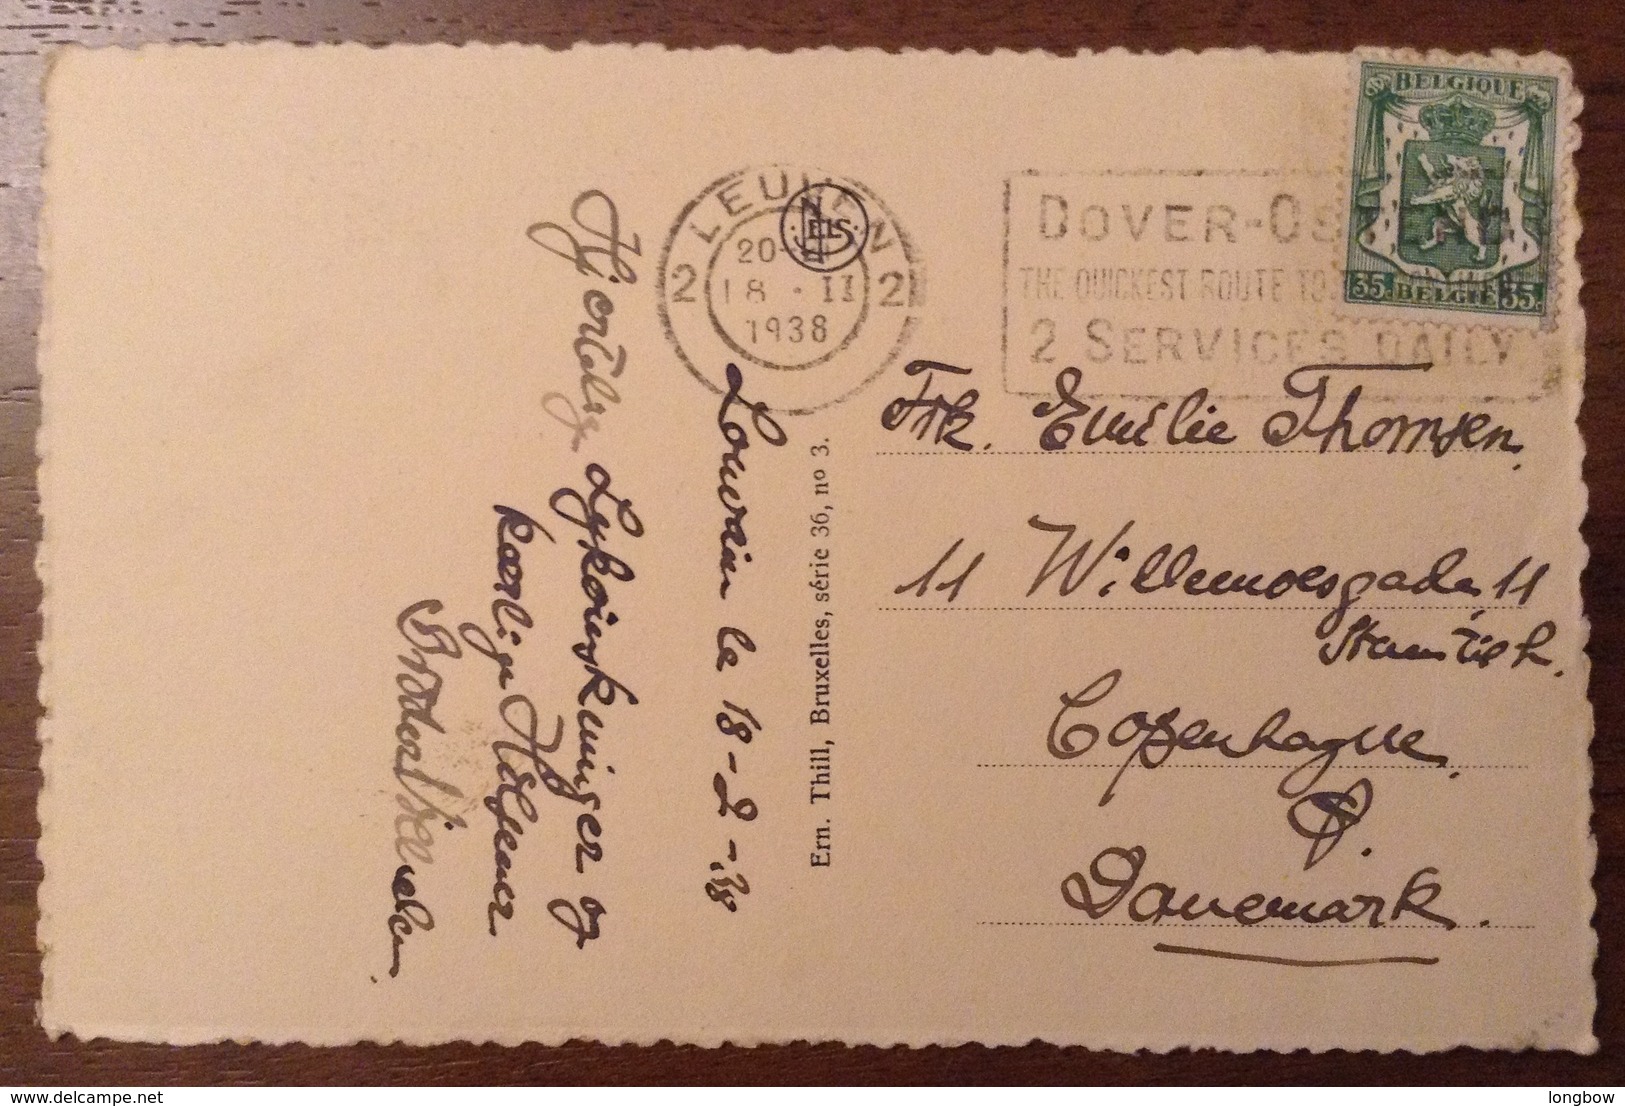 Louvain le 18-2-38
Hjertelige Lykønskninger og
kærlige Hilsener
LEUVEN
2 2
20-
18 · II
1938
NELS
DOVER-OSTENDE
THE QUICKEST ROUTE TO
2 SERVICES DAILY
BELGIQUE
35. BELGIË 35.
Ern. Thill, Bruxelles, série 36, no 3.
Frk. Emilie Thomsen,
11 Willemoesgade 11
Copenhague
Ø.
Danemark.
delcampe.net
longbow